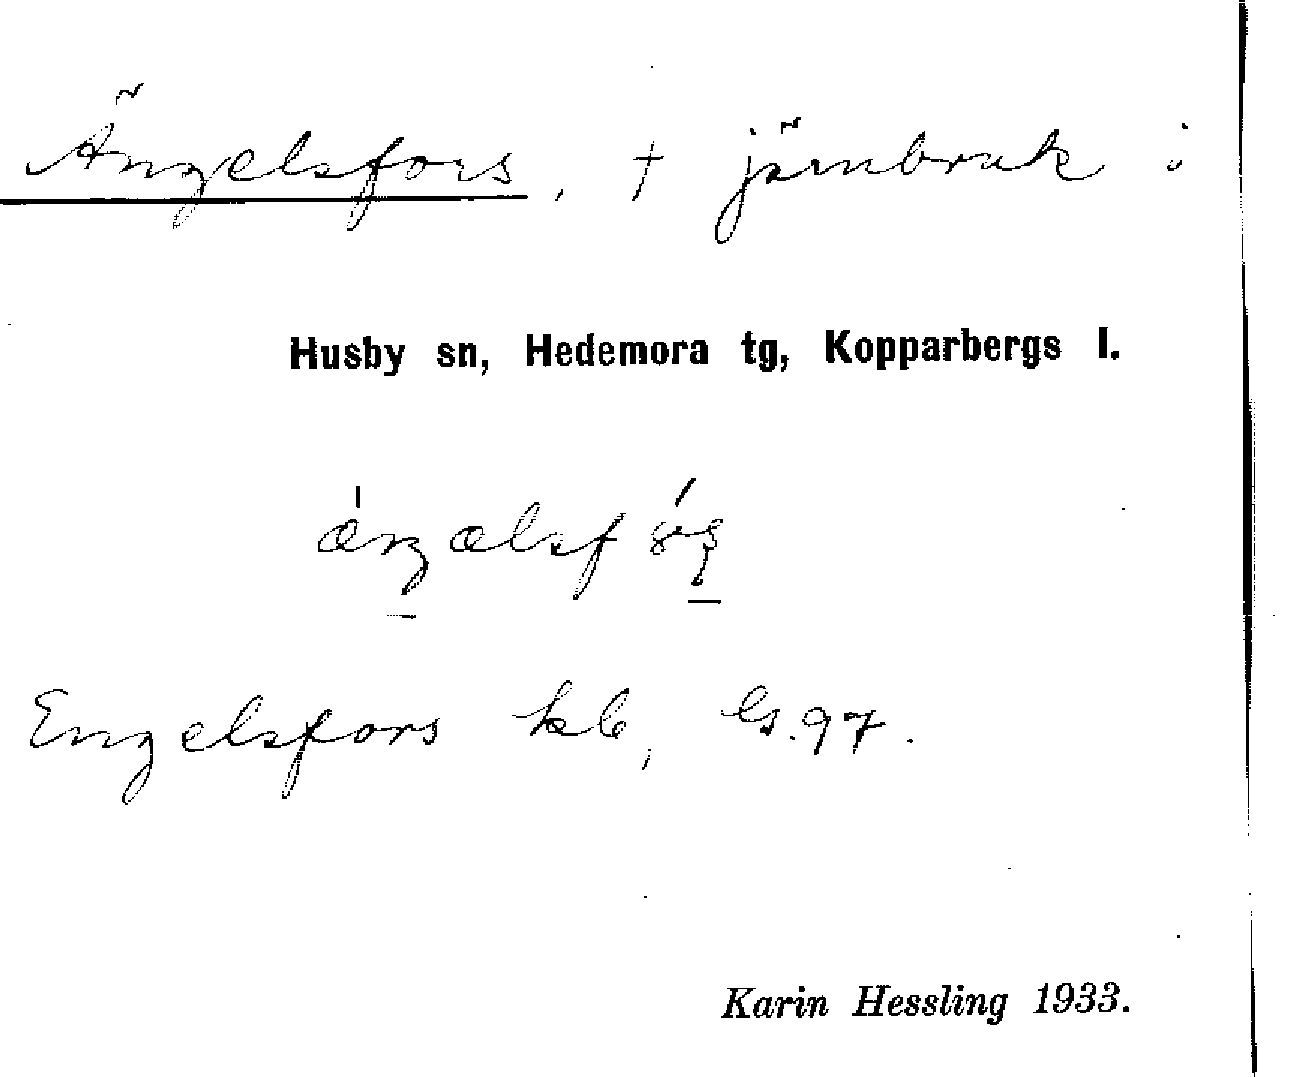 Ängelsfors, † järnbruk i
Husby sn, Hedemora tg, Kopparbergs l.
Engelsfors kb, Gs. 97.
Karin Hessling 1933.